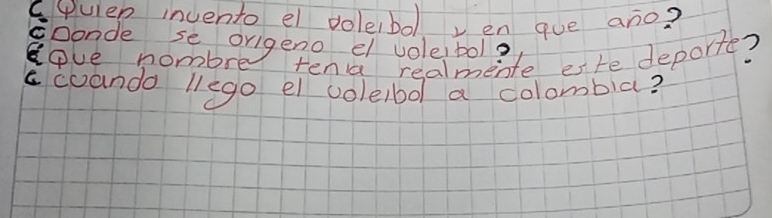 ¿Quien invento el voleibol y en que año?
¿Donde se origeno el voleibol?
¿Que nombre tenia realmente este deporte?
¿cuando llego el voleibol a colombia?